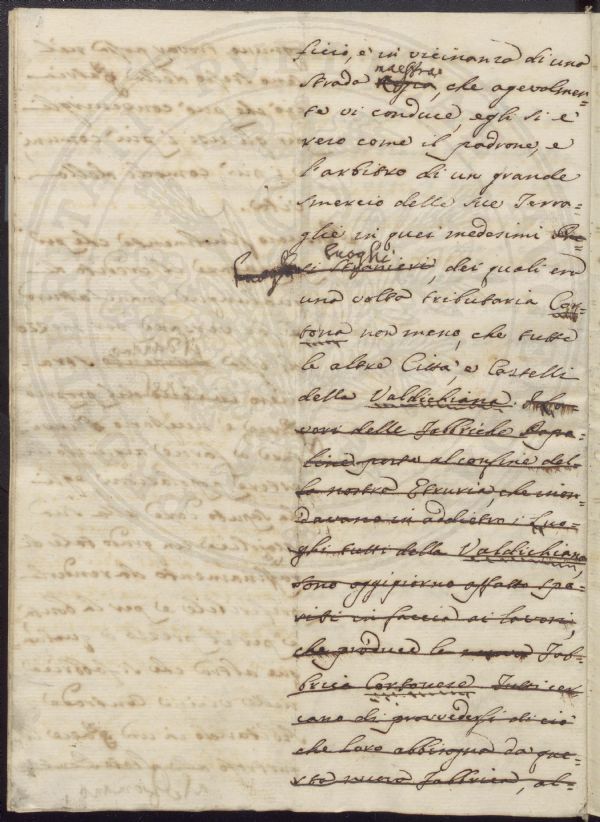 ficio, è in vicinanza di una
maestra
strada Regia, che agevolmen=
te vi conduce, egli si è
reso come il padrone, e
l'arbitro di un grande
smercio delle sue Terra=
glie in quei medesimi
luoghi
si stranieri, dei quali era
una volta tributaria Cor=
tona non meno, che tutte
le altre Città, e Castelli
della Valdichiana. I la=
vori delle Fabbriche Papa=
line poste al confine del=
la nostra Etruria, che inon=
davano in addietro i Luo=
ghi tutti della Valdichiana,
sono oggigiorno affatto spa=
riti in faccia ai lavori,
che produce la nuova Fab=
brica Cortonese. Tutti cer=
cano di provvedersi di ciò
che loro abbisogna da que=
sta nuova Fabbrica, al=